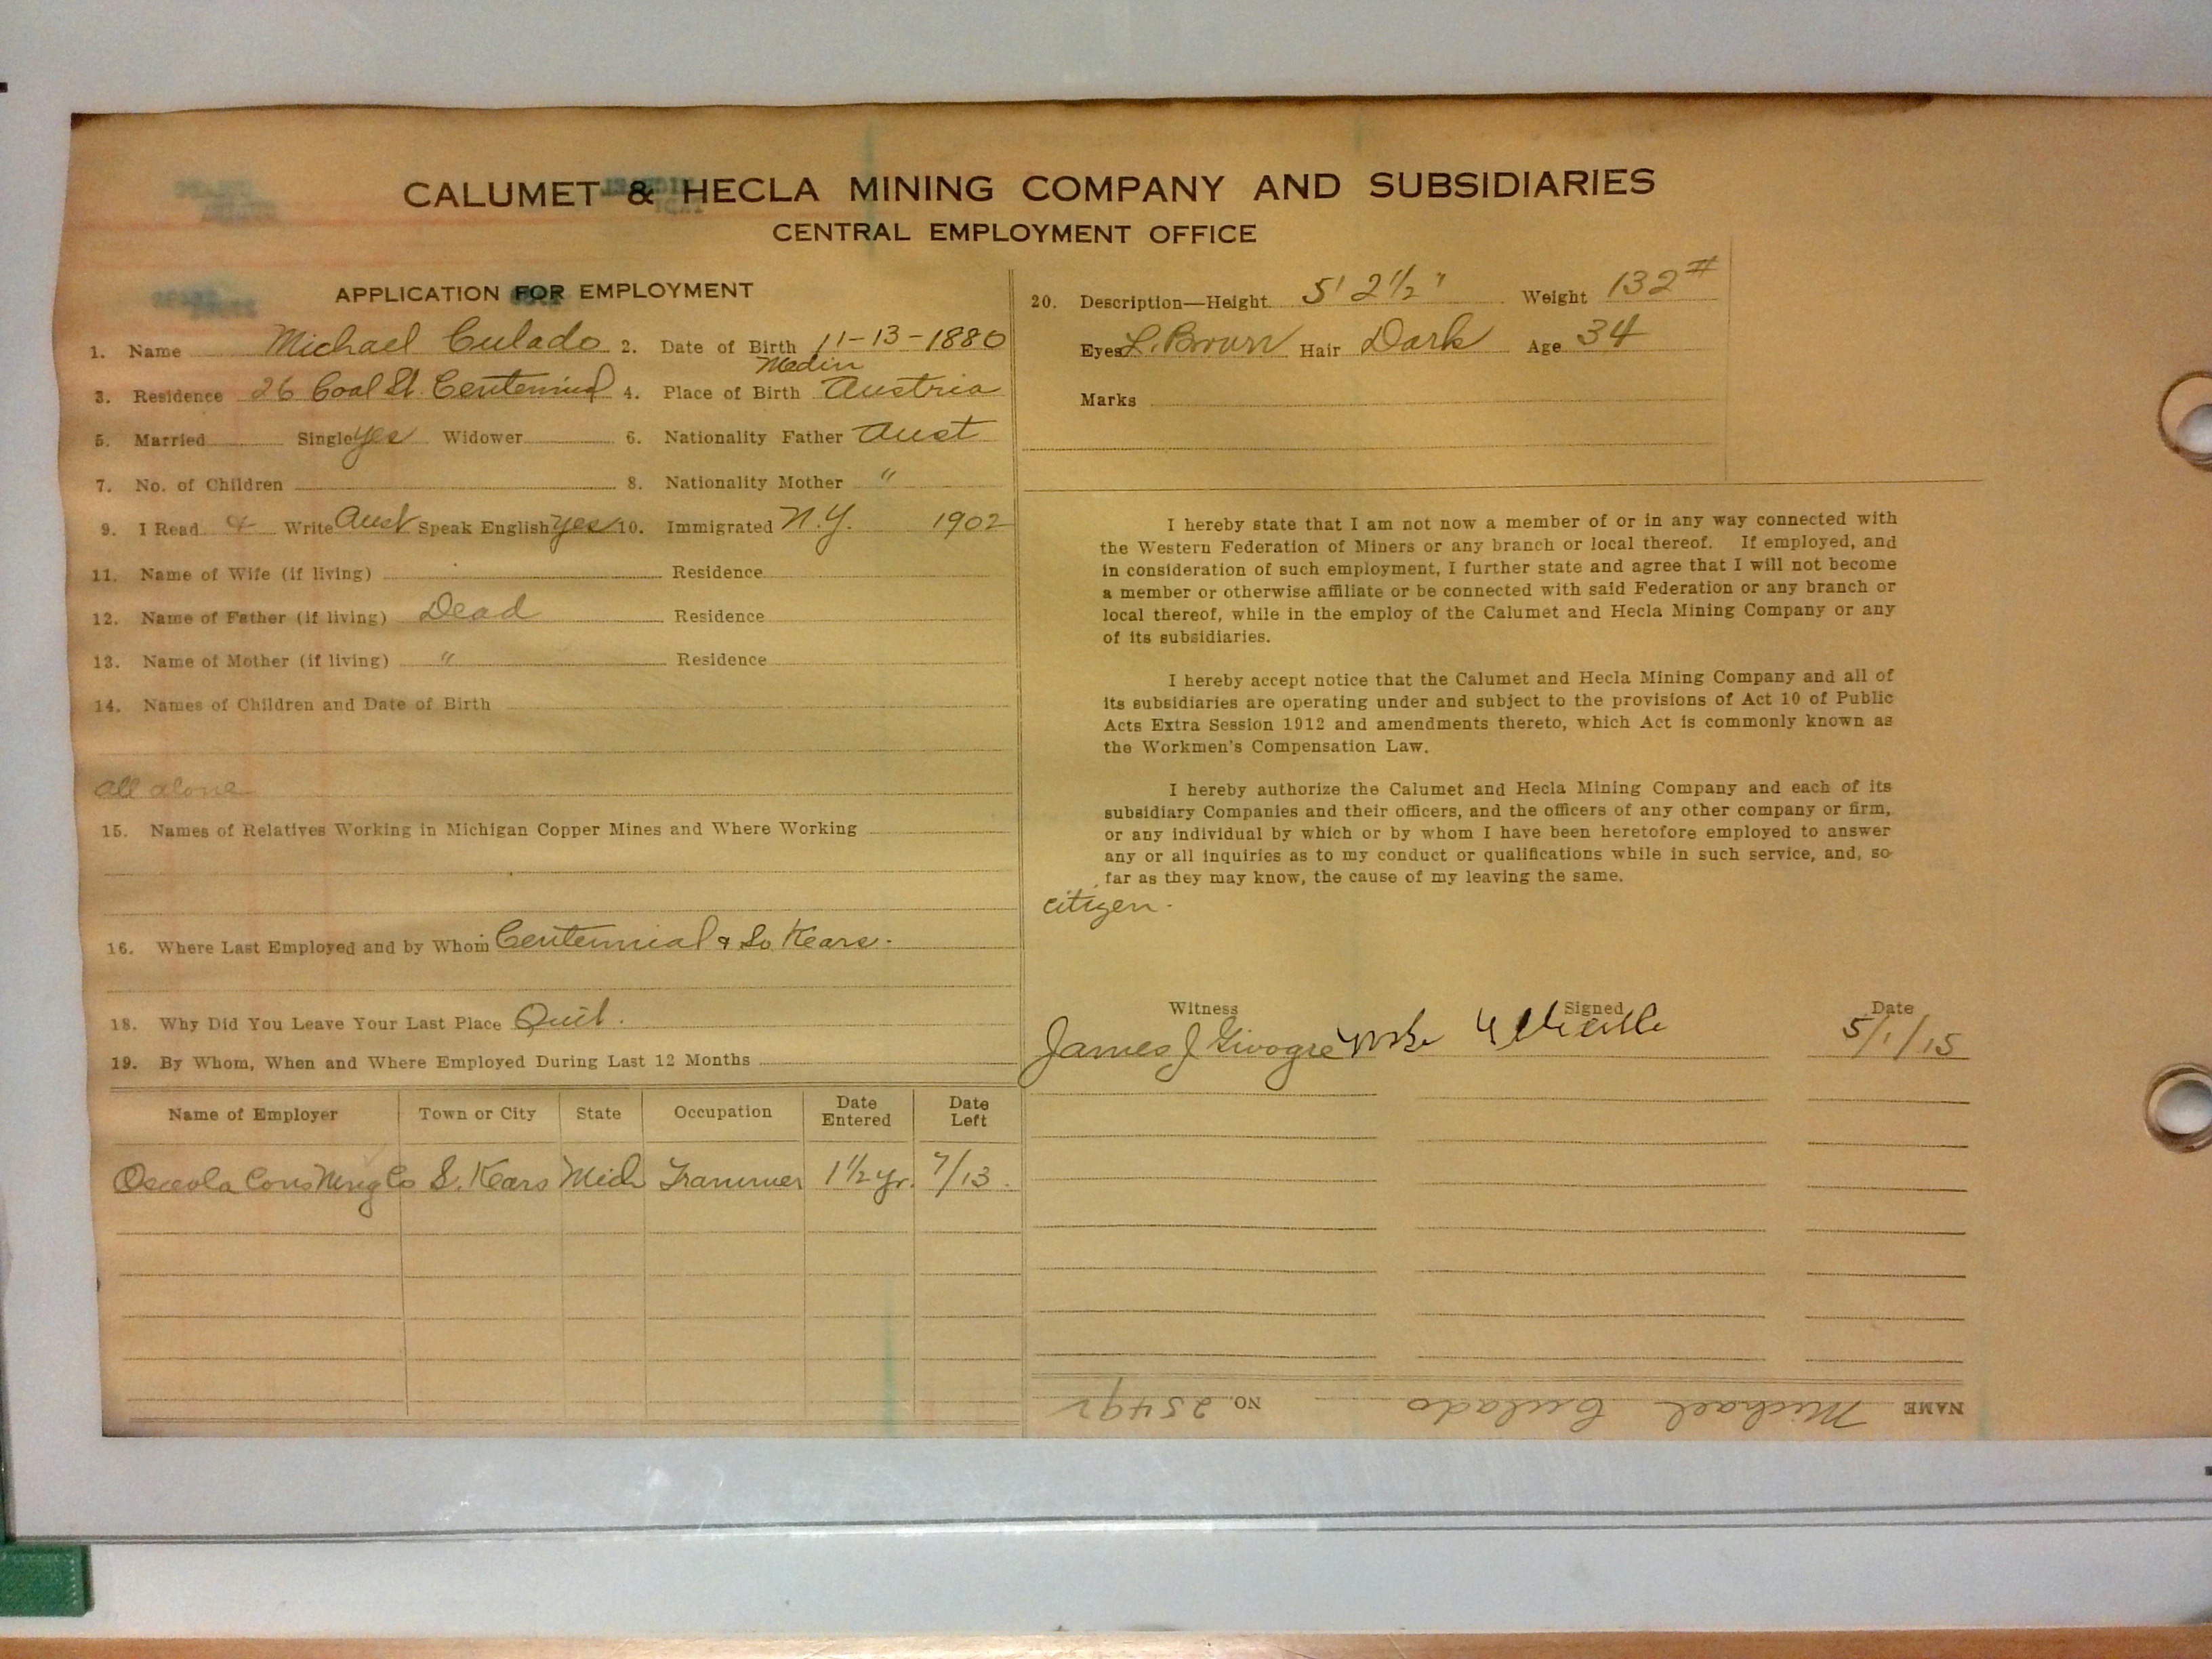 CALUMET & HECLA MINING COMPANY AND SUBSIDIARIES
CENTRAL EMPLOYMENT OFFICE
APPLICATION FOR EMPLOYMENT
1. Name Michael Culado 2. Date of Birth 11-13-1880
Medin
3. Residence 26 Coal St. Centennial 4. Place of Birth Austria
5. Married Single yes Widower 6. Nationality Father Aust
7. No. of Children 8. Nationality Mother "
9. I Read & Write Aust Speak English yes 10. Immigrated N.Y. 1902
11. Name of Wife (if living) Residence
12. Name of Father (if living) Dead Residence
13. Name of Mother (if living) " Residence
14. Names of Children and Date of Birth
all alone
15. Names of Relatives Working in Michigan Copper Mines and Where Working
16. Where Last Employed and by Whom Centennial & So Kears.
18. Why Did You Leave Your Last Place Quit.
19. By Whom, When and Where Employed During Last 12 Months
Name of Employer Town or City State Occupation Date Entered Date Left
Osceola Cons Mng Co S. Kears Mich Trammer 1 1/2 yr. 7/13.
20. Description—Height 5' 2 1/2" Weight 132 #
Eyes L. Brown Hair Dark Age 34
Marks
I hereby state that I am not now a member of or in any way connected with
the Western Federation of Miners or any branch or local thereof. If employed, and
in consideration of such employment, I further state and agree that I will not become
a member or otherwise affiliate or be connected with said Federation or any branch or
local thereof, while in the employ of the Calumet and Hecla Mining Company or any
of its subsidiaries.
I hereby accept notice that the Calumet and Hecla Mining Company and all of
its subsidiaries are operating under and subject to the provisions of Act 10 of Public
Acts Extra Session 1912 and amendments thereto, which Act is commonly known as
the Workmen's Compensation Law.
I hereby authorize the Calumet and Hecla Mining Company and each of its
subsidiary Companies and their officers, and the officers of any other company or firm,
or any individual by which or by whom I have been heretofore employed to answer
any or all inquiries as to my conduct or qualifications while in such service, and, so
far as they may know, the cause of my leaving the same.
citizen.
Witness Signed Date
James J 5/1/15
NAME Michael Culado NO. 25492